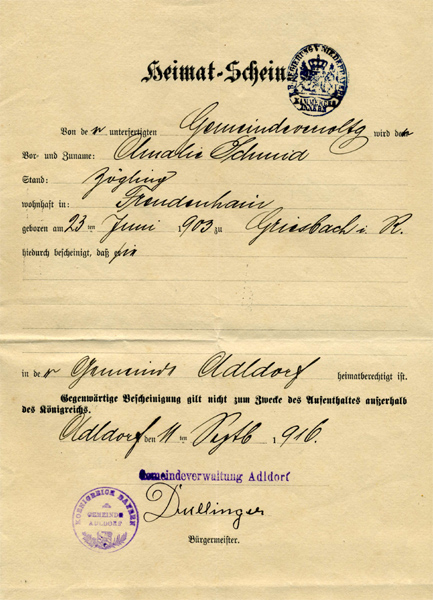 Heimat-Schein
Von der unterfertigten Gemeindeverwltg wird der
Vor- und Zuname: Amalie Schmid
Stand: Zögling
wohnhaft in: Freudenhain
geboren am 23ten Juni 1903 zu Griesbach i. R.
hiedurch bescheinigt, daß sie
in der Gemeinde Adldorf heimatberechtigt ist.
Gegenwärtige Bescheinigung gilt nicht zum Zwecke des Aufenthaltes außerhalb
des Königreichs.
Adldorf den 11ten Septb 1916.
Gemeindeverwaltung Adldorf
Dullinger
Bürgermeister.
KOENIGREICH BAYERN
GEMEINDE
ADLDORF